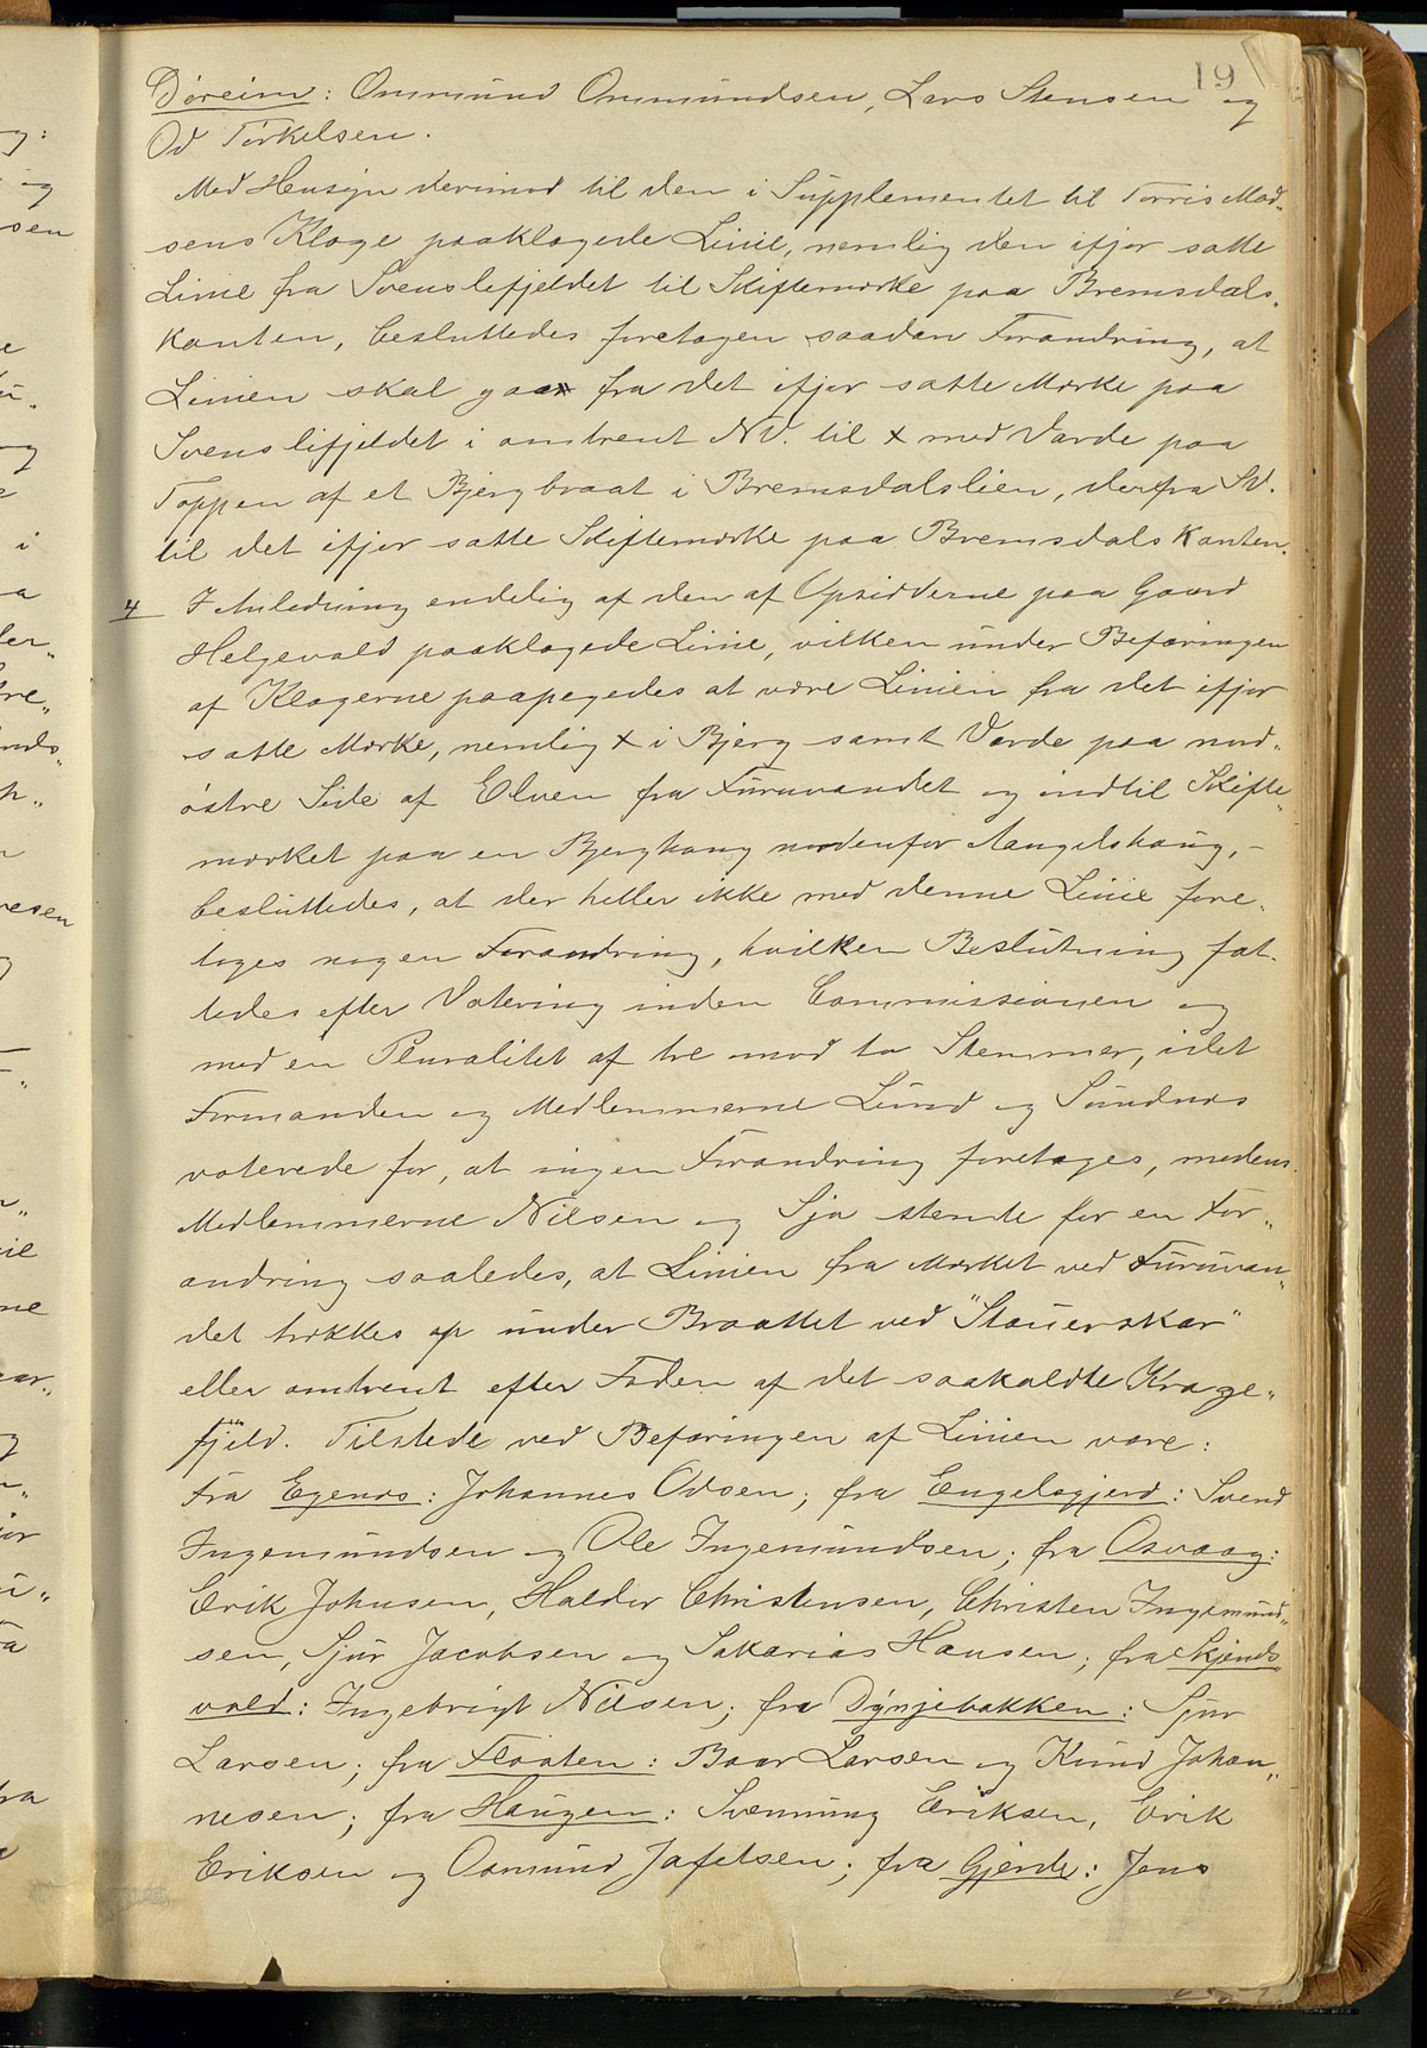 19
Döreim: Ommund Ommundsen, Lars Stensen og
Od Torkelsen.
Med Hensyn derimod til den i Supplementet til Torris Mad„
sens Klage paaklagede Linie, nemlig den ifjor satte
Linie fra Svenslifjeldet til Skiftemærke paa Bremsdals„
kanten, besluttedes foretagen saadan Forandring, at
Linien skal gaa fra det ifjor satte Mærke paa
Svenslifjeldet i omtrent NV. til x med Varde paa
Toppen af et Bjergbraat i Bremsdalslien, derfra SV.
til det ifjor satte Skiftemærke paa Bremsdalskanten.
4 I Anledning endelig af den af Opsidderne paa Gaard
Helgevold paaklagede Linie, vilken under Befaringen
af Klagerne paapegedes at være Linien fra det ifjor
satte Mærke, nemlig x i Bjerg samt Varde paa nord„
östre Side af Elven fra Furuvandet og indtil Skifte„
mærket paa en Bjerghaug nordenfor Aangelshaug, -
besluttedes, at der heller ikke med denne Linie fore„
toges nogen Forandring, hvilken Beslutning fat„
tedes efter Votering inden Commissionen og
med en Pluralitet af tre mod to Stemmer, idet
Formanden og Medlemmerne Lund og Sundnæs
voterede for, at ingen Forandring foretages, medens
Medlemmerne Nilsen og Sjo stemte for en For„
andring saaledes, at Linien fra Mærket ved Furuvan„
det trækkes op under Braattet ved "Stauerskar"
eller omtrent efter Foden af det saakaldte Krage„
fjeld. Tilstede ved Befaringen af Linien vare:
Fra Egenæs: Johannes Odsen; fra Engelsgjerd: Svend
Ingemundsen og Ole Ingemundsen; fra Osvaag:
Erik Johnsen, Haldor Christensen, Christen Ingemund„
sen, Sjur Jacobsen og Sakarias Hansen; fra Skjends„
vold: Ingebrigt Nilsen; fra Dynjebakken: Sjur
Larsen; fra Flaaten: Baar Larsen og Knud Johan„
nesen; fra Haugen: Svenning Eriksen, Erik
Eriksen og Osmund Jafetsen; fra Gjerde: Jens